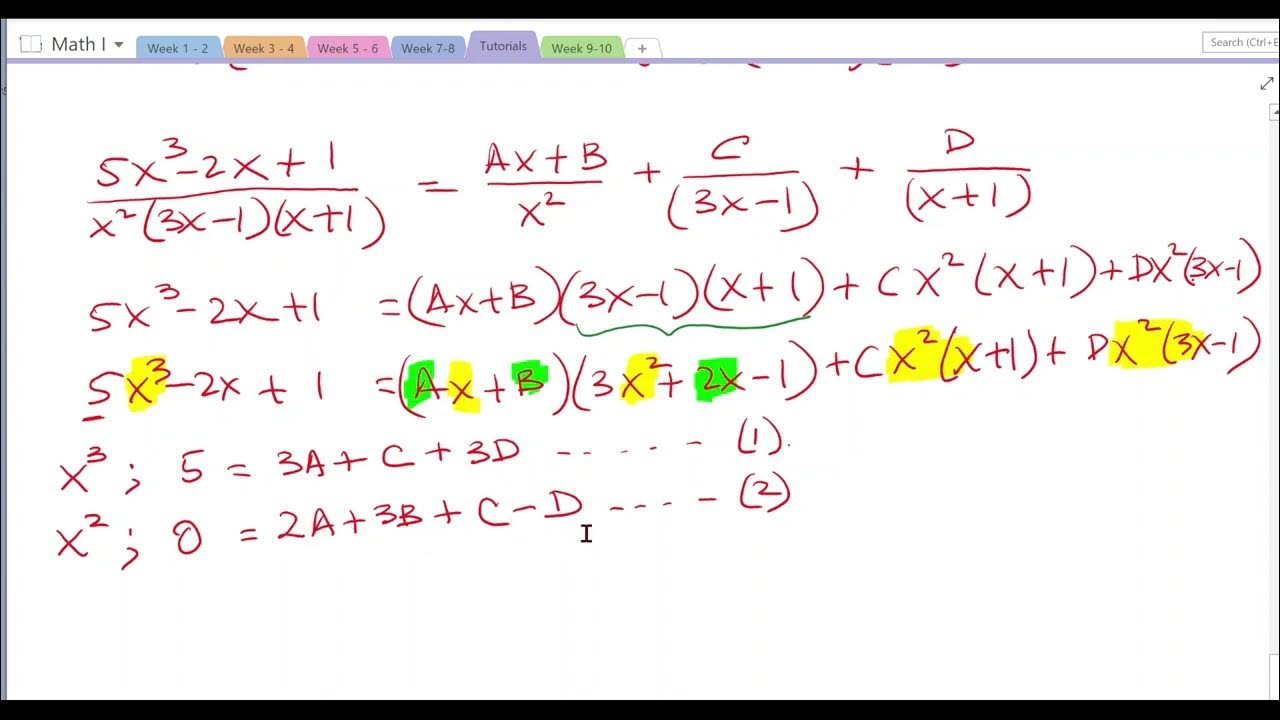 Math I
Week 1 - 2 Week 3 - 4 Week 5 - 6 Week 7-8 Tutorials Week 9-10 +
Search (Ctrl+E
(5x³-2x+1)/(x²(3x-1)(x+1)) = (Ax+B)/x² + C/(3x-1) + D/(x+1)
5x³-2x+1 =(Ax+B)(3x-1)(x+1)+Cx²(x+1)+Dx²(3x-1)
5x³-2x+1 =(Ax+B)(3x²+2x-1)+Cx²(x+1)+Dx²(3x-1)
x³ ; 5 = 3A+C+3D ------ (1).
x² ; 0 = 2A+3B+C-D ----- (2)